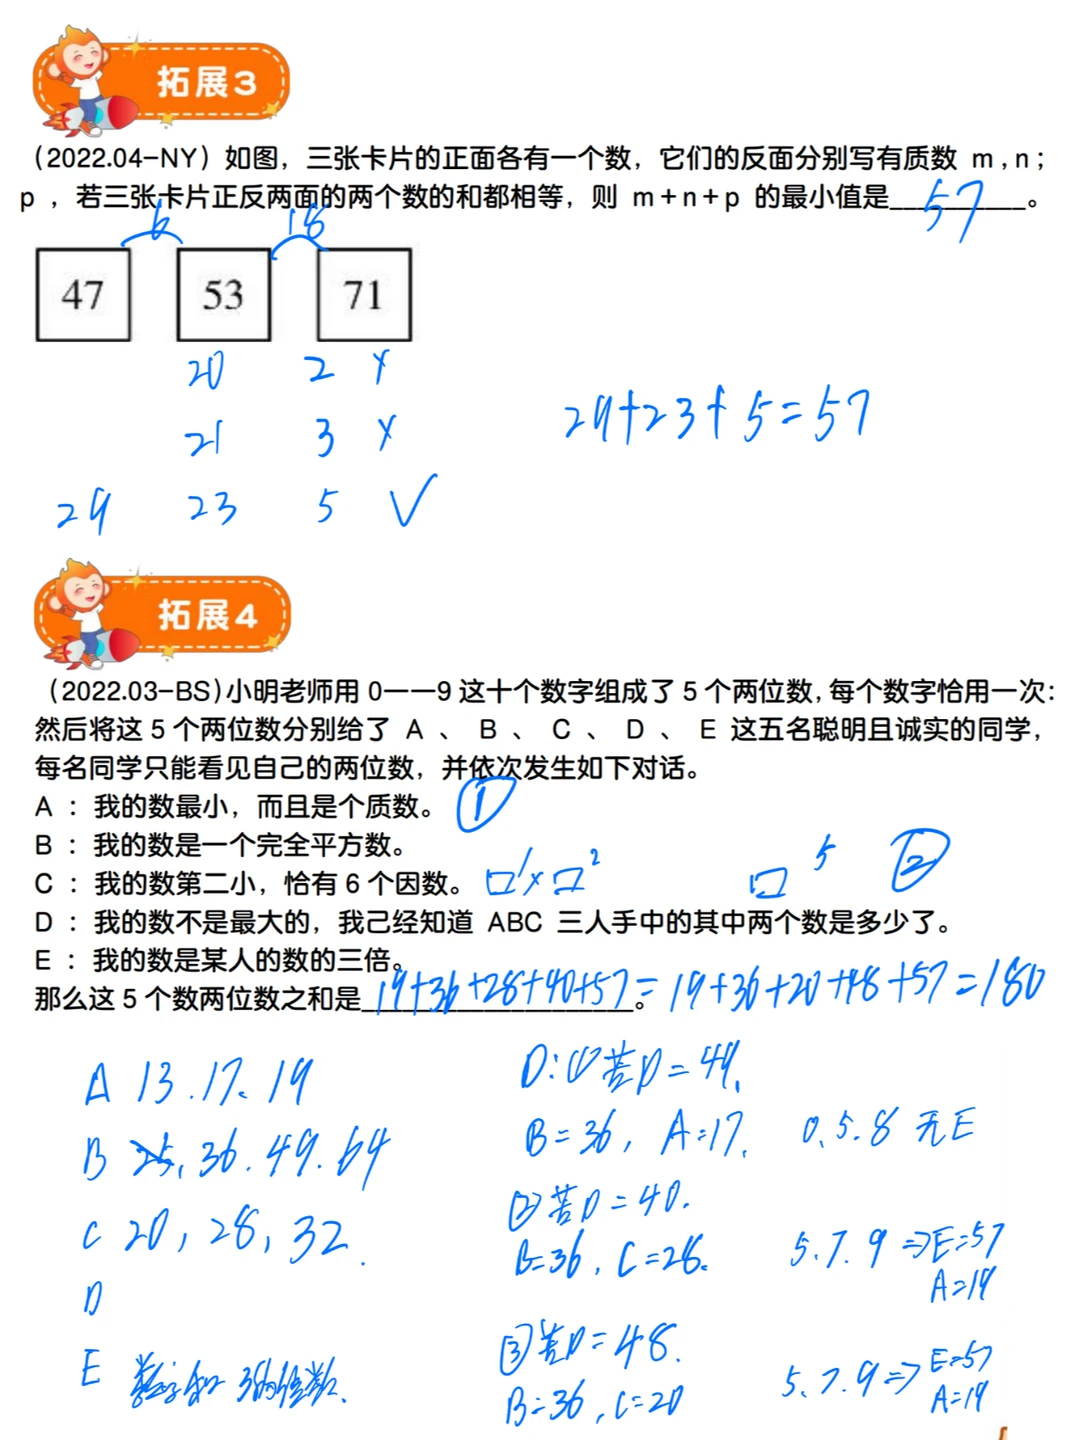 拓展3
（2022.04-NY）如图，三张卡片的正面各有一个数，它们的反面分别写有质数 m ,n ;
p ，若三张卡片正反两面的两个数的和都相等，则 m+n+p 的最小值是__________。
57
6 18
47 53 71
20 2 ×
21 3 ×
29 23 5 √
29+23+5=57
拓展4
（2022.03-BS)小明老师用 0一一9 这十个数字组成了 5 个两位数, 每个数字恰用一次:
然后将这 5 个两位数分别给了 A 、 B 、 C 、 D 、 E 这五名聪明且诚实的同学，
每名同学只能看见自己的两位数，并依次发生如下对话。
A ：我的数最小，而且是个质数。 ①
B ：我的数是一个完全平方数。
C ：我的数第二小，恰有 6 个因数。 □¹×□² □⁵ ②
D ：我的数不是最大的，我己经知道 ABC 三人手中的其中两个数是多少了。
E ：我的数是某人的数的三倍。
那么这 5 个数两位数之和是____________________。
19+36+28+40+57=19+36+20+48+57=180
A 13.17.19
B 25,36.49.64
C 20,28,32.
D
E 数字和 3的倍数.
D:①若D=49.
B=36, A=17. 0.5.8 无E
②若D=40.
B=36, C=28. 5.7.9⇒E=57
A=19
③若D=48.
B=36, C=20 5.7.9⇒E=57
A=19